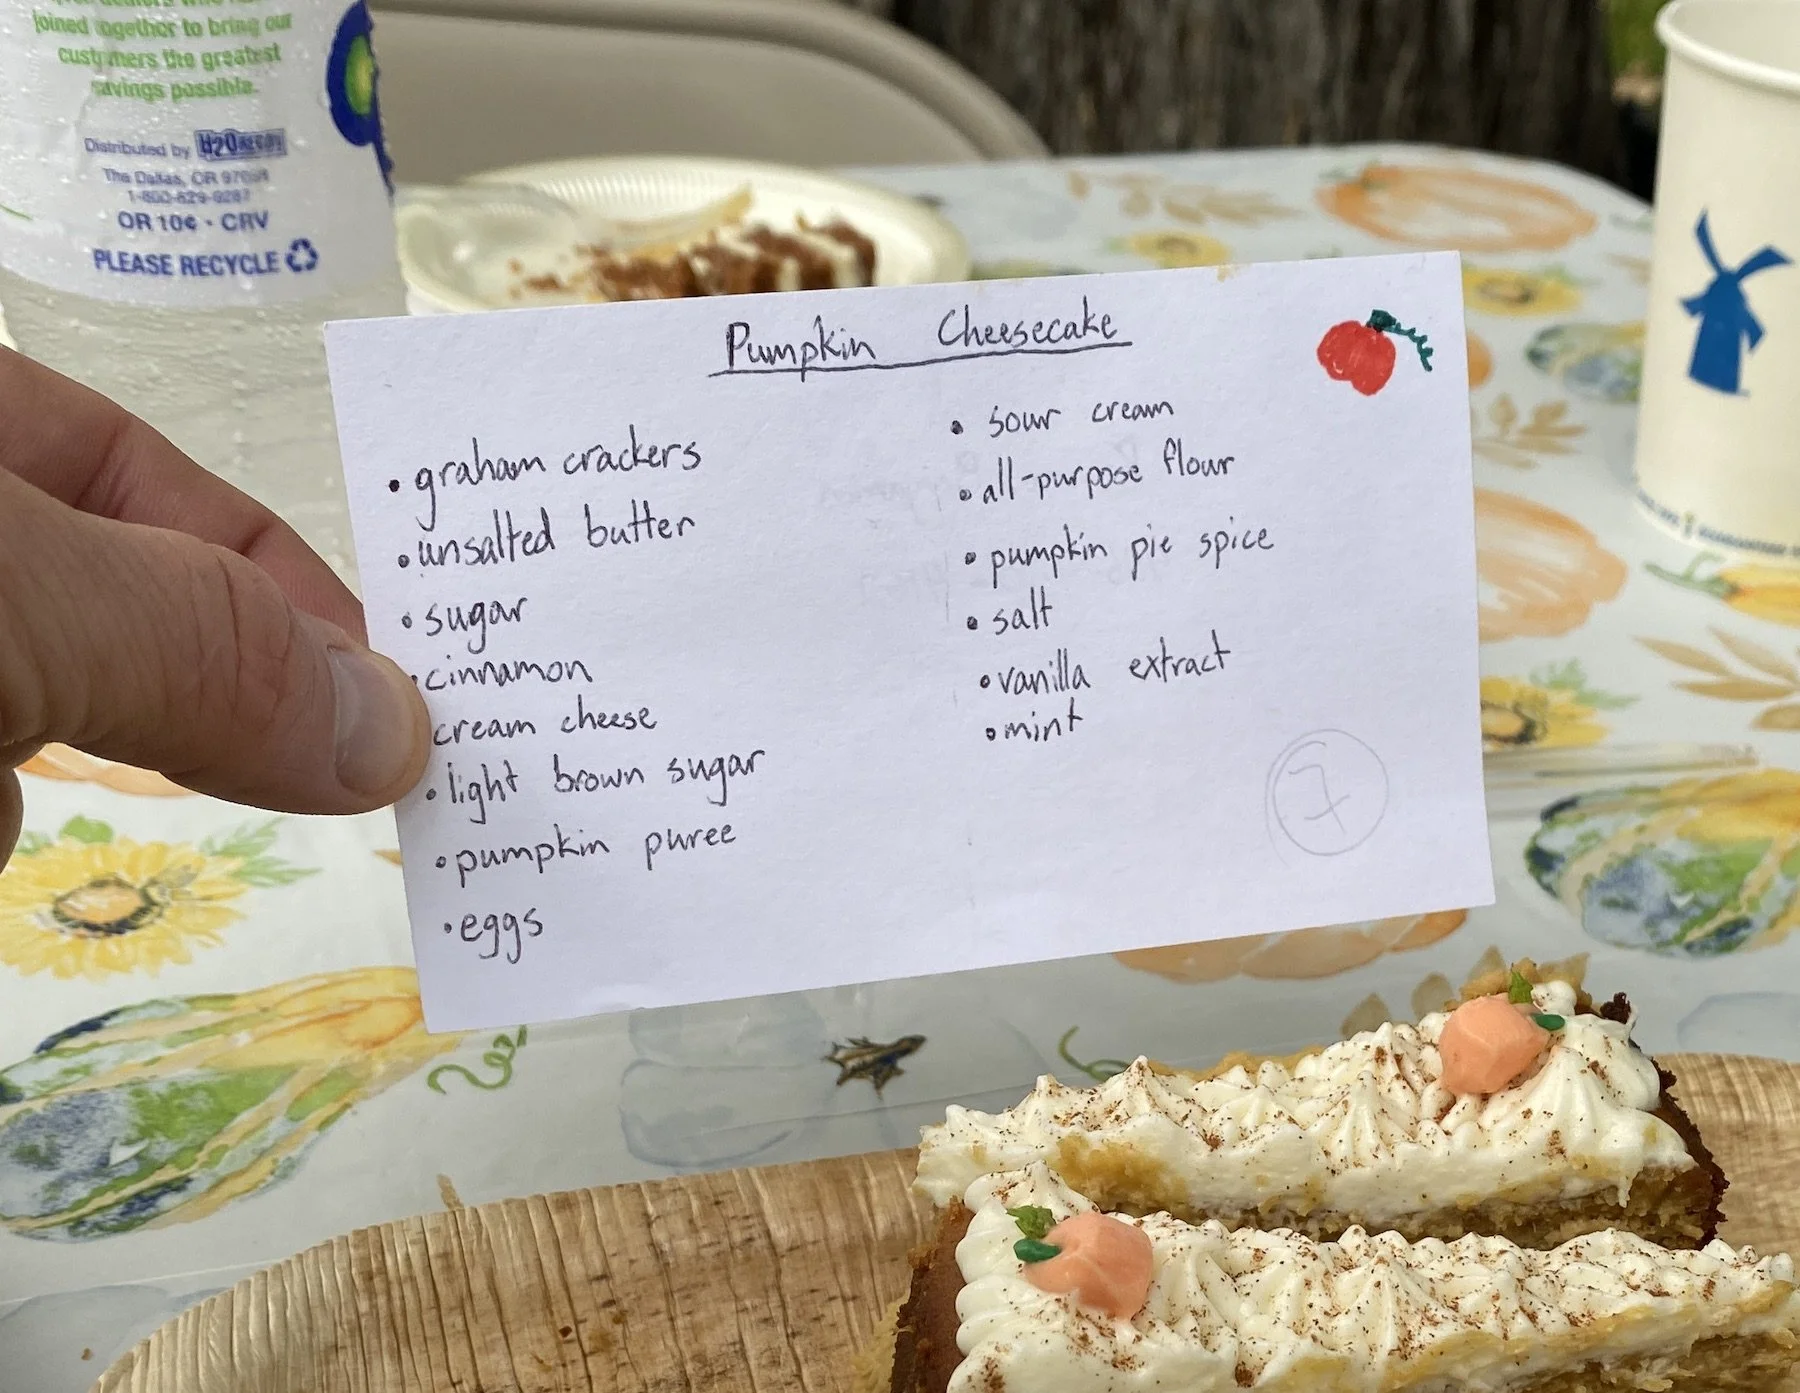 joined together to bring our
customers the greatest
savings possible.
Distributed by H2O
The Dallas, OR
OR 10¢ · CRV
PLEASE RECYCLE
Pumpkin Cheesecake
• graham crackers
• unsalted butter
• sugar
• cinnamon
cream cheese
• light brown sugar
• pumpkin puree
• eggs
• sour cream
• all-purpose flour
• pumpkin pie spice
• salt
• vanilla extract
• mint
7